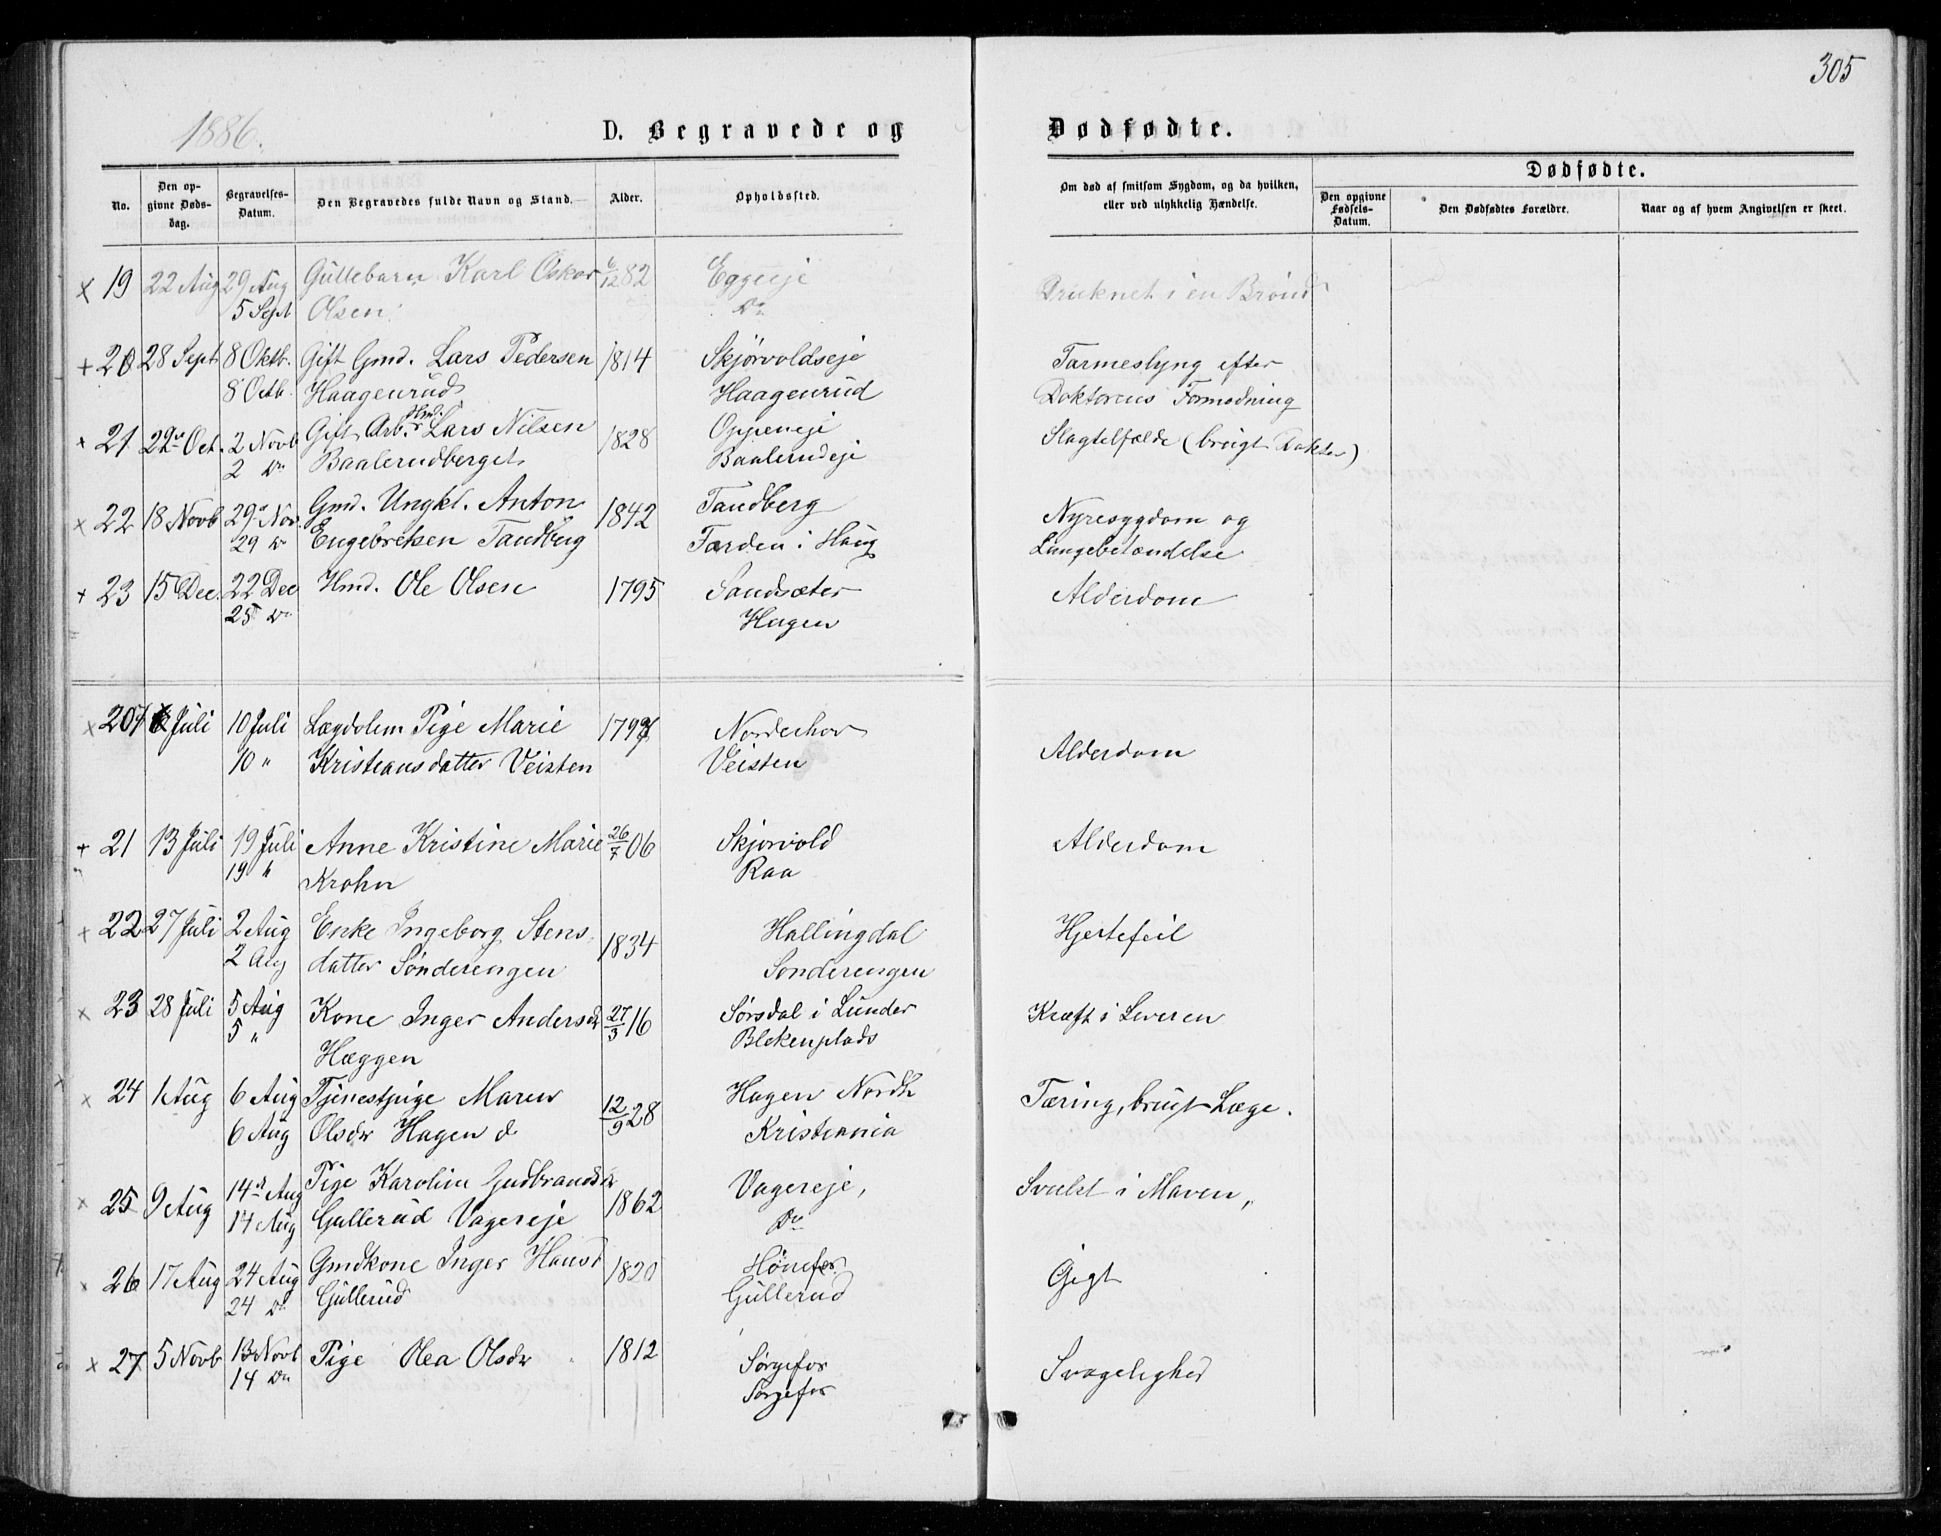 305
1886.
D. Begravede og Dødfødte.
No.
Den opgivne Dødsdag.
Begravelses-Datum.
Den Begravedes fulde Navn og Stand.
Alder.
Opholdssted.
Om død af smitsom Sygdom, og da hvilken, eller ved ulykkelig Hændelse.
Dødfødte.
Den opgivne Fødsels-Datum.
Den Dødfødtes Forældre.
Naar og af hvem Angivelsen er skeet.
x 19 22 Aug 29 Aug Guttebarn Karl Oskar 6/12 82 Eggeeje Druknet i en Brønd
5 Sept Olsen Do
+ 20 28 Sept 8 Oktb. Gift Gmd. Lars Pedersen 1814 Skjørvoldseje Tarmeslyng efter
8 Octb. Haagenrud Haagenrud Doktorens Formodning
+ 21 29de Oct. 2 Novb Gift Arbr. Hmd. Lars Nilsen 1828 Oppeneje Slagtilfælde (brugt Doktor)
2 Do Baalerudberget Baalerudeje
x 22 18 Novb 29de Nov. Gmd. Ungkl. Anton 1842 Tandberg Nyresygdom og
29 Do Engebretsen Tandberg Færden i Haug Lungebetændelse
+ 23 15 Dec. 22 Dec Hmd. Ole Olsen 1795 Sandsæter Alderdom
25 Do Hagen
x 20 Juli 10 Juli Lægdslem Pige Marie Norderhov Alderdom
10 " Kristiansdatter Veisten Veisten
+ 21 13 Juli 19 Juli Anne Kristine Marie 26/7 06 Skjørvold Alderdom
19 " Krohn Raa
+ 22 27 Juli 2 Aug Enke Ingeborg Stens- 1834 Hallingdal Hjertefeil
2 Aug datter Sønderengen Sønderengen
x 23 28 Juli 5 Aug Kone Inger Andersdr 27/3 16 Sørsdal i Lunder Kræft i Leveren
5 " Hæggen Blekenplads
x 24 1 Aug 6 Aug Tjenestpige Maren 12/9 28 Hagen Nordh Tæring, brugt Læge.
6 Aug Olsdr Hagen d Kristiania
x 25 9 Aug 14de Aug Pige Karoline Gudbrandsdr 1862 Vagereje, Svulst i Maven,
14 Aug Gullerud Vagereje Do
x 26 17 Aug 24 Aug Gmdkone Inger Hansd 1820 Hønefos Gigt
24 Do Gullerud Gullerud
x 27 5 Novb 13 Novb Pige Olea Olsdr 1812 Sørgefos Svagelighed
14 Do Sørgefos